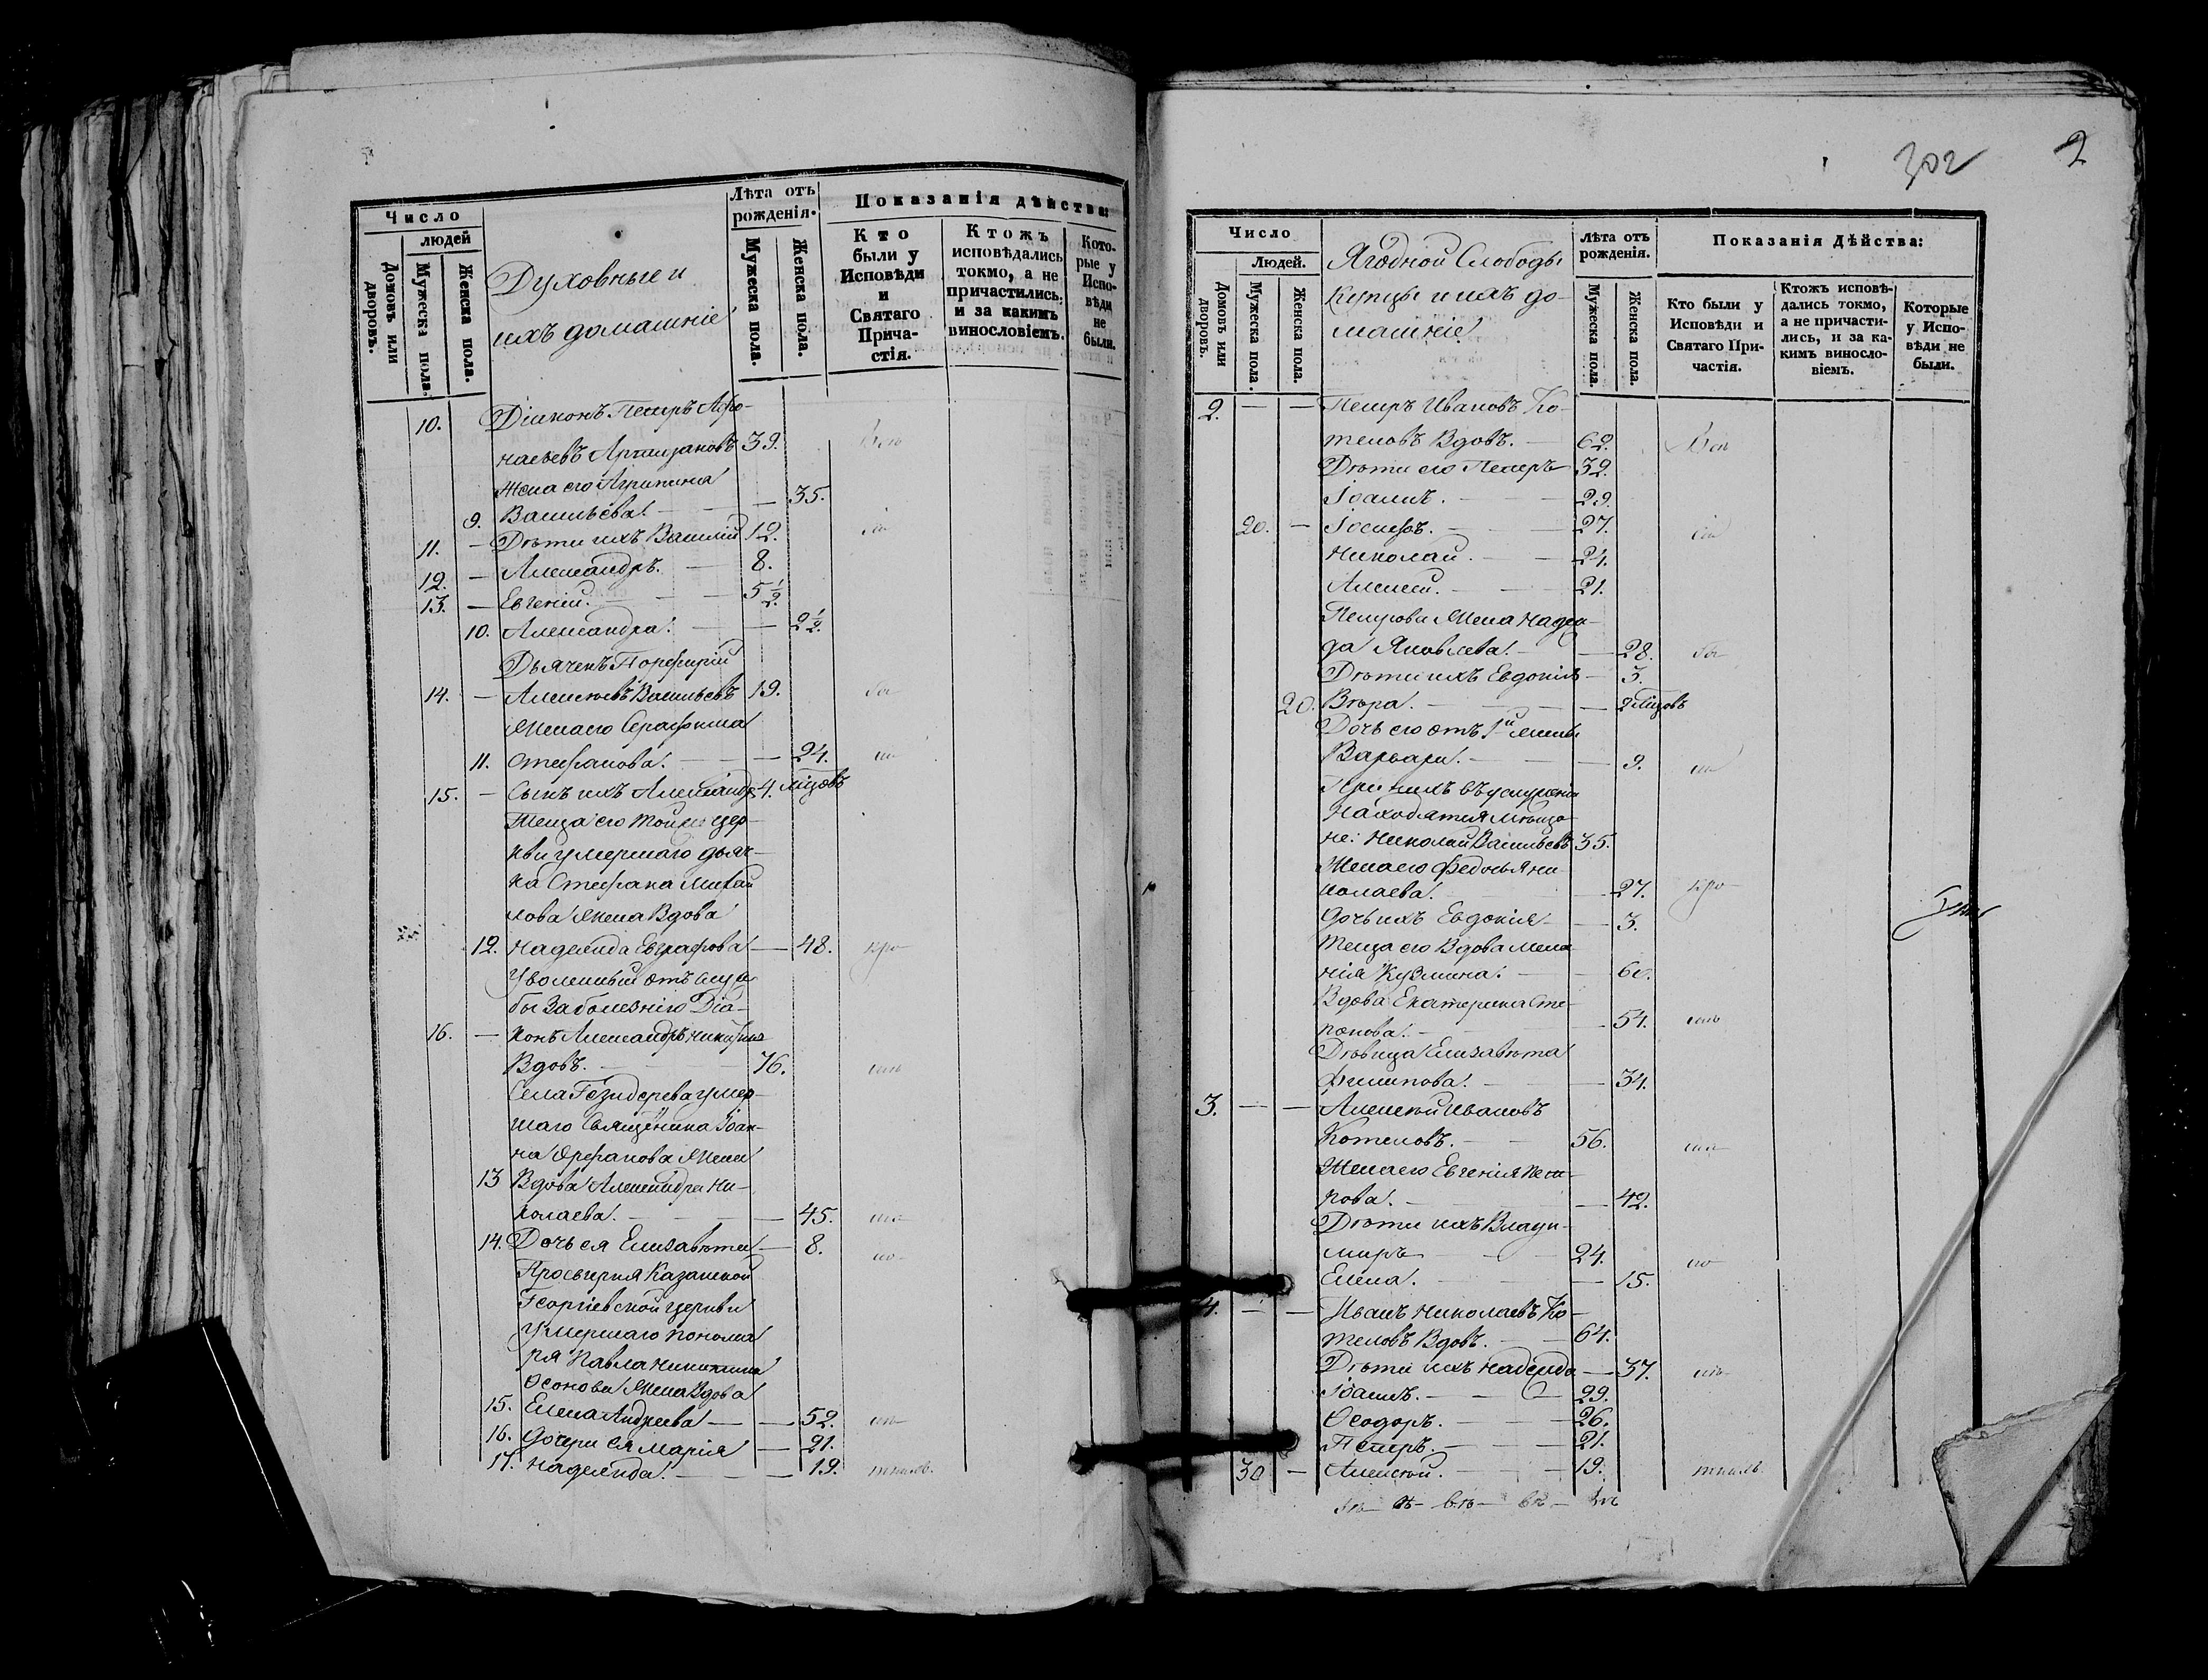 Число
людей
Домовъ или дворовъ.
Мужеска пола.
Женска пола.
Духовные и
ихъ домашніе
Лѣта отъ
рожденія.
Мужеска пола.
Женска пола.
Показанія дѣйства:
Кто
были у
Исповѣди
и
Святаго
Прича-
стія.
Ктожъ
исповѣдались
токмо, а не
причастились,
и за какимъ
винословіемъ.
Кото-
рые у
Испо-
вѣди
не
были.
10. Діаконъ Петръ Афо-
насьевъ 39.
Жена его Агрипина
9. Васильева 35.
11. — Дѣти ихъ Василій 12.
12. — Александръ. 8.
13. — Евгеній. 5 1/2.
10. Александра. 2 1/2.
Дьячекъ Порфирій
14. — Алексѣевъ Васильевъ 19.
Жена его Серафима
11. Стефанова. 24.
15. — Сынъ ихъ Александръ 4. мѣсцовъ
Теща его той же цер-
кви умершаго дьяч-
ка Стефана Михай
лова жена Вдова
12. Надежда Евграфова 48.
Уволенный отъ служ
бы За болезнію Діа-
16. — конъ Александръ
Вдовъ. 76.
Села умер-
шаго Священника Іоан-
на жена
13 Вдова Александра Ни-
колаева. 45.
14. Дочь ея Елизавета 8.
Просвирня Казанской
Георгіевской церкви
умершаго понома
ря Павла
жена Вдова
15. Елена Андреева 52.
16. Дочери ея Марія 21.
17. Надежда. 19.
302
2
Число
Людей.
Домовъ или дворовъ.
Мужеска пола.
Женска пола.
Ягодной Слободы
Купцы и ихъ до-
машніе
Лѣта отъ
рожденія.
Мужеска пола.
Женска пола.
Показанія Дѣйства:
Кто были у
Исповѣди и
Святаго При-
частія.
Ктожъ исповѣ-
дались токмо,
а не причасти-
лись, и за ка-
кимъ виносло-
віемъ.
Которые
у Испо-
вѣди не
были.
2. — — Петръ Ивановъ Ко-
теловъ Вдовъ. 62.
Дѣти его Петръ 32.
Іоаннъ. 29.
20. — Іосифъ. 27.
Николай. 24.
Алексей. 21.
Петрова жена Надеж
да Яковлева. 28.
Дѣти ихъ Евдокія 3.
20. Вѣра. 2 мѣсцовъ
Дочь его отъ 1й жены
Варвара. 9.
При нихъ въ услуженіи
Находятся мѣща-
не: Николай Васильевъ 35.
Жена его Федосья Ни
колаева. 27.
Дочь ихъ Евдокія 3.
Теща его Вдова Мела
нія Кузмина. 60.
Вдова Екатерина Сте-
панова. 54.
Дѣвица Елизавета
Филипова. 34.
3. — — Алексѣй Ивановъ
Котеловъ. 56.
Жена его Евгенія Пет-
рова. 42.
Дѣти ихъ Влади-
миръ 24.
Елена. 15.
4. — — Иванъ Николаевъ Ко-
теловъ Вдовъ. 64.
Дѣти ихъ Надежда 37.
Іоаннъ. 29.
Ѳеодоръ. 26.
Петръ. 21.
30 — Алексѣй. 19.